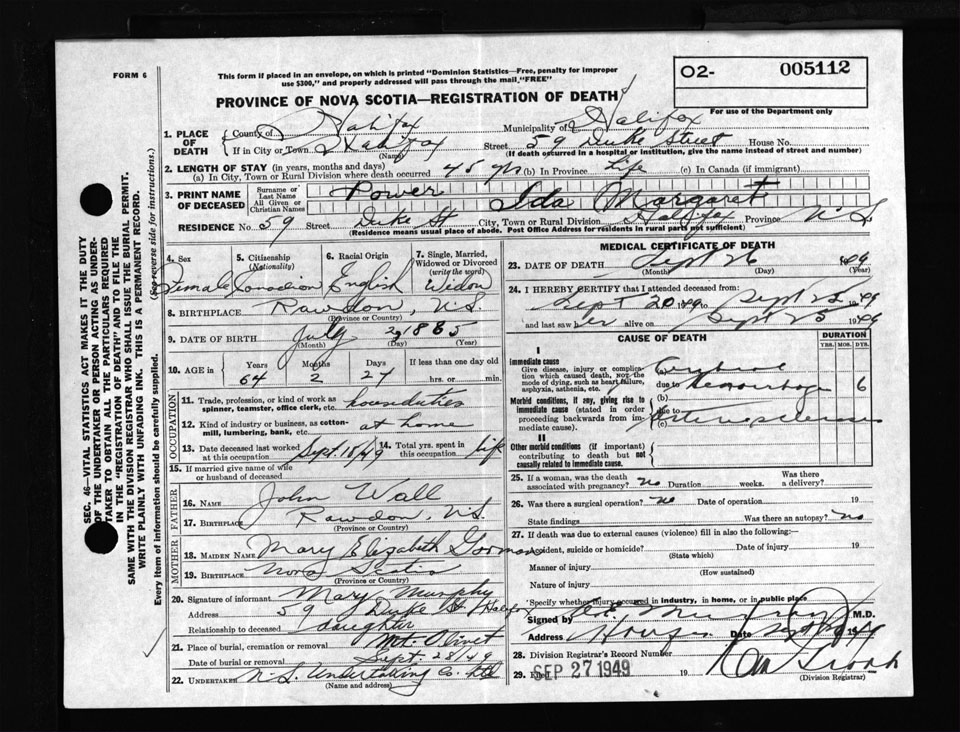 FORM 6
This form if placed in an envelope, on which is printed "Dominion Statistics—Free, penalty for improper
use $300," and properly addressed will pass through the mail, "FREE"
O2- 005112
For use of the Department only
PROVINCE OF NOVA SCOTIA—REGISTRATION OF DEATH
1. PLACE OF DEATH
County of Halifax Municipality of Halifax
If in City or Town Halifax Street 59 Duke Street House No.
(Name) (If death occurred in a hospital or institution, give the name instead of street and number)
2. LENGTH OF STAY (in years, months and days)
(a) In City, Town or Rural Division where death occurred 45 yrs (b) In Province Life (c) In Canada (if immigrant)
3. PRINT NAME OF DECEASED
Surname or Last Name Power
All Given or Christian Names Ida Margaret
RESIDENCE No. 59 Street Duke St City, Town or Rural Division Halifax Province N.S.
(Residence means usual place of abode. Post Office Address for residents in rural parts not sufficient)
4. Sex Female
5. Citizenship (Nationality) Canadian
6. Racial Origin English
7. Single, Married, Widowed or Divorced (write the word) Widow
8. BIRTHPLACE Rawdon, N.S.
(Province or Country)
9. DATE OF BIRTH July 1885
(Month) (Day) (Year)
10. AGE in Years Months Days If less than one day old
64 2 27 hrs. or min.
OCCUPATION
11. Trade, profession, or kind of work as spinner, teamster, office clerk, etc. houseduties
12. Kind of industry or business, as cotton-mill, lumbering, bank, etc. at home
13. Date deceased last worked at this occupation Sept. 18/49
14. Total yrs. spent in this occupation life
15. If married give name of wife or husband of deceased
FATHER
16. Name John Wall
17. Birthplace Rawdon, N.S.
(Province or Country)
MOTHER
18. Maiden Name Mary Elizabeth Gorman
19. Birthplace Nova Scotia
(Province or Country)
20. Signature of informant Mary Murphy
Address 59 Duke St Halifax
Relationship to deceased daughter
21. Place of burial, cremation or removal Mt. Olivet
Date of burial or removal Sept. 28/49
22. UNDERTAKER N.S. Undertaking Co. Ltd
(Name and address)
MEDICAL CERTIFICATE OF DEATH
23. DATE OF DEATH Sept 26 1949
(Month) (Day) (Year)
24. I HEREBY CERTIFY that I attended deceased from:
Sept 20 1949 to Sept 25 1949
and last saw her alive on Sept 25 1949
CAUSE OF DEATH
DURATION
YRS. MOS. DYS.
I
Immediate cause
Give disease, injury or complication which caused death, not the mode of dying, such as heart failure, asphyxia, asthenia, etc.
(a) Cerebral
due to Hemorrhage 6
Morbid conditions, if any, giving rise to immediate cause (stated in order proceeding backwards from immediate cause).
(b)
due to Arteriosclerosis
(c)
II
Other morbid conditions (if important) contributing to death but not causally related to immediate cause.
25. If a woman, was the death associated with pregnancy? no Duration weeks. Was there a delivery?
26. Was there a surgical operation? no Date of operation 19
State findings Was there an autopsy? no
27. If death was due to external causes (violence) fill in also the following:—
Accident, suicide or homicide? Date of injury 19
(State which)
Manner of injury
(How sustained)
Nature of injury
Specify whether injury occurred in industry, in home, or in public place
Signed by M.D.
Address Date 1949
28. Division Registrar's Record Number
29. Filed SEP 27 1949 19
(Division Registrar)
SEC. 46—VITAL STATISTICS ACT MAKES IT THE DUTY
OF THE UNDERTAKER OR PERSON ACTING AS UNDER-
TAKER TO OBTAIN ALL THE PARTICULARS REQUIRED
IN THE "REGISTRATION OF DEATH" AND TO FILE THE
SAME WITH THE DIVISION REGISTRAR WHO SHALL ISSUE THE BURIAL PERMIT.
WRITE PLAINLY WITH UNFADING INK. THIS IS A PERMANENT RECORD.
Every item of information should be carefully supplied. (See reverse side for instructions.)